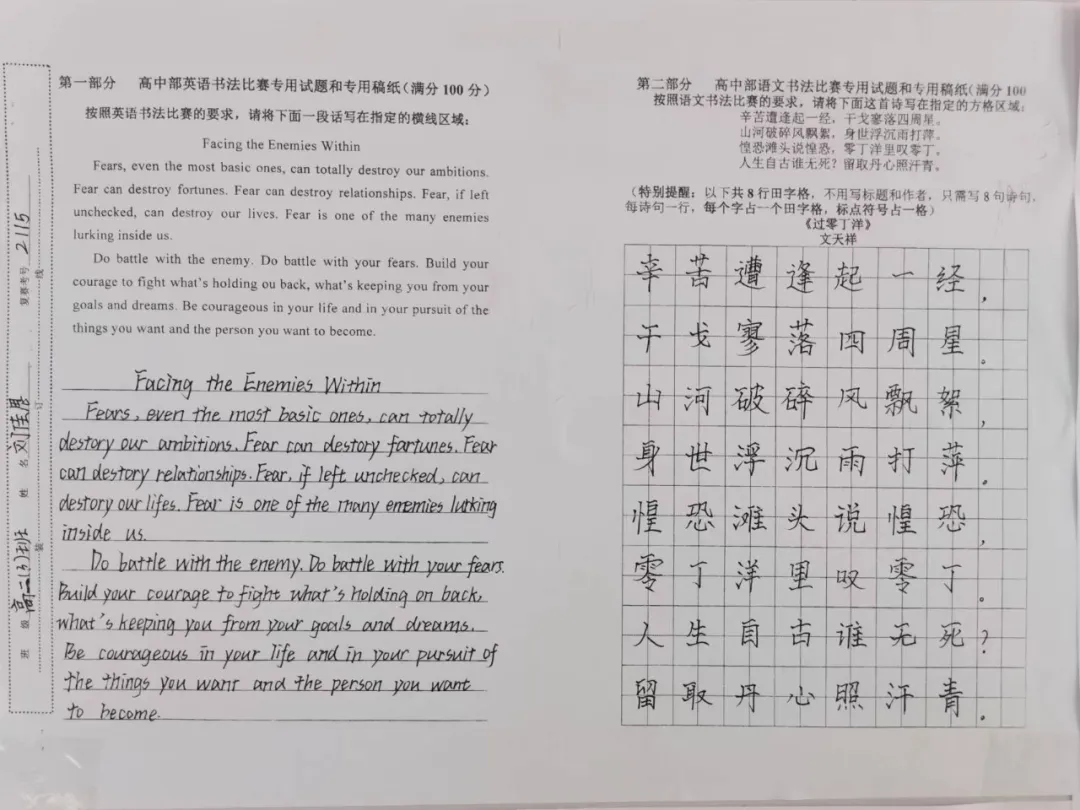 第一部分 高中部英语书法比赛专用试题和专用稿纸(满分100分)
按照英语书法比赛的要求,请将下面一段话写在指定的横线区域:
Facing the Enemies Within
Fears, even the most basic ones, can totally destroy our ambitions.
Fear can destroy fortunes. Fear can destroy relationships. Fear, if left
unchecked, can destroy our lives. Fear is one of the many enemies
lurking inside us.
Do battle with the enemy. Do battle with your fears. Build your
courage to fight what's holding ou back, what's keeping you from your
goals and dreams. Be courageous in your life and in your pursuit of the
things you want and the person you want to become.
Facing the Enemies Within
Fears, even the most basic ones, can totally
destory our ambitions. Fear can destory fortunes. Fear
can destory relationships. Fear, if left unchecked, can
destory our lifes. Fear is one of the many enemies lurking
inside us.
Do battle with the enemy. Do battle with your fears.
Build your courage to fight what's holding on back,
what's keeping you from your goals and dreams.
Be courageous in your life and in your pursuit of
the things you want and the person you want
to become.
复赛考号 2115
姓名
班级 高二
装
订
线
第二部分 高中部语文书法比赛专用试题和专用稿纸(满分100
按照语文书法比赛的要求,请将下面这首诗写在指定的方格区域:
辛苦遭逢起一经,干戈寥落四周星。
山河破碎风飘絮,身世浮沉雨打萍。
惶恐滩头说惶恐,零丁洋里叹零丁。
人生自古谁无死?留取丹心照汗青。
(特别提醒:以下共8行田字格,不用写标题和作者,只需写8句诗句,
每诗句一行,每个字占一个田字格,标点符号占一格)
《过零丁洋》
文天祥
辛苦遭逢起一经,
干戈寥落四周星。
山河破碎风飘絮,
身世浮沉雨打萍。
惶恐滩头说惶恐,
零丁洋里叹零丁。
人生自古谁无死?
留取丹心照汗青。